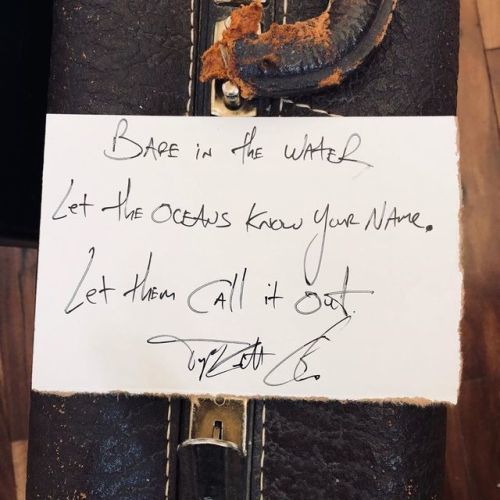 BARE IN the WATER
Let the OCEANS KNOW YOUR NAME.
Let them CAll it Out.